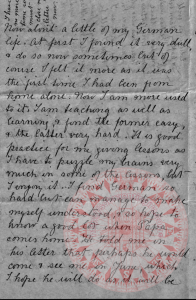 Now about a little of my German
life. At first I found it very dull
& do so now sometimes but of
course I felt it more as it was
the first time I had been from
home alone. Now I am more used
to it. I am teaching as well as
learning & find the former easy
& the latter very hard. It is good
practice for me giving lessons as
I have to puzzle my brains very
much in some of the lessons, but
I enjoy it. I find German so
hard but I can manage to make
myself understood, & so hope to
know a good lot when Papa
comes home. He told me in
his letter that perhaps he would
come & see me in June which
I hope he will do as it will be